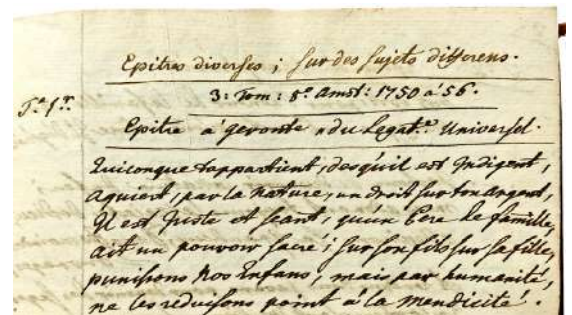 Epitres diverses ; sur des sujets differens.
3: Tom: 8.° Amst: 1750 a 56.
T.e 1.er
Epitre a geronte du Legat.re Universel.
Quiconque t'appartient, desqu'il est Indigent,
aquiert, par la nature, un droit sur ton argent,
Il est juste et seant, qu'un Pere de famille,
ait un pouvoir sacré ; sur son fils sur sa fille,
punissons nos Enfans, mais par humanité,
ne les reduisons point a la mendicité.